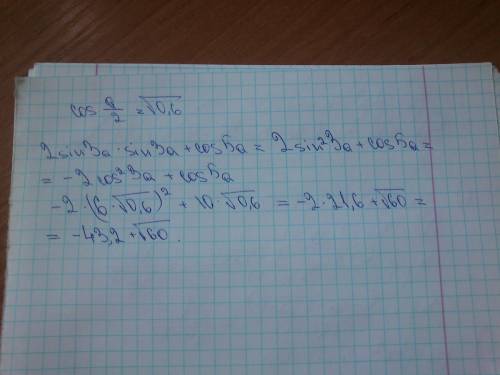 cos a/2 = √0,6
2 sin3a · sin3a + cos5a = 2 sin²3a + cos5a =
= -2 cos²3a + cos5a
-2 · (6 · √0,6)² + 10 · √0,6 = -2 · 21,6 + √60 =
= -43,2 + √60 .